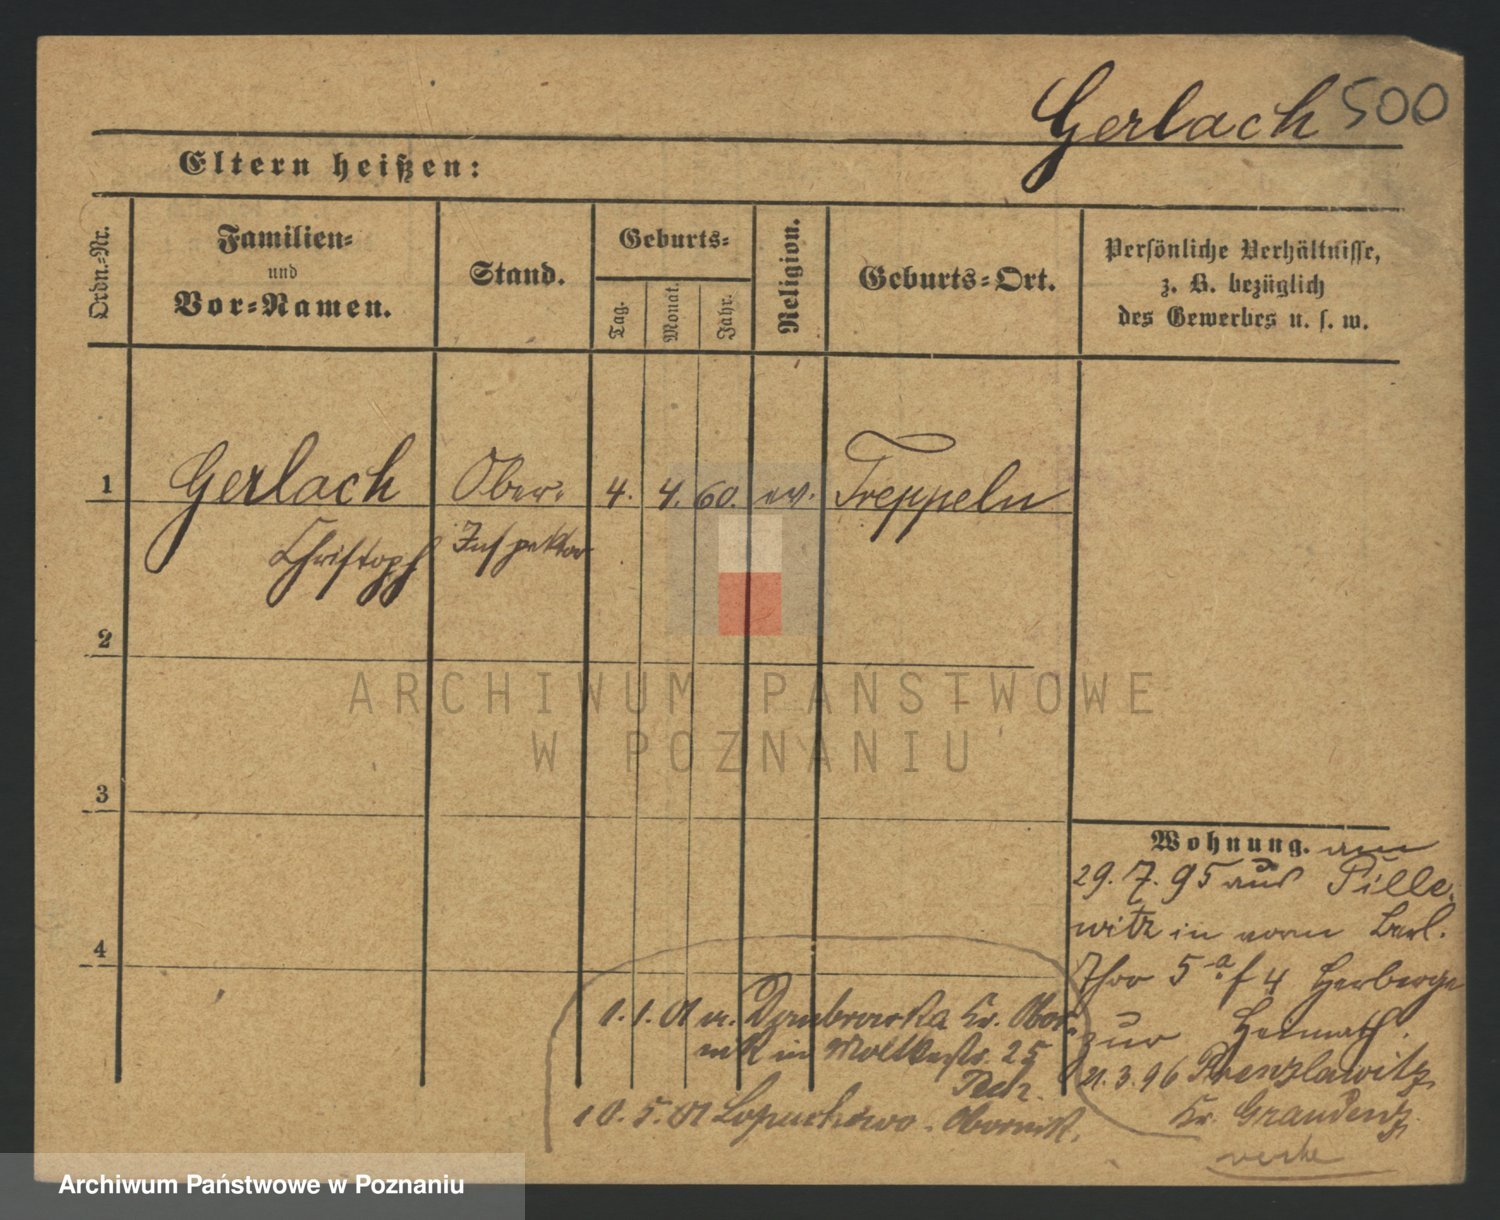 Gerlach 500
Eltern heißen:
Ordn.-Nr.
Familien-
und
Vor-Namen.
Stand.
Geburts-
Tag.
Monat.
Jahr.
Religion.
Geburts-Ort.
Persönliche Verhältnisse,
z. B. bezüglich
des Gewerbes u. s. w.
1 Gerlach Ober- 4. 4. 60. ev. Treppeln
Christoph Inspektor
2
3
4
ARCHIWUM PAŃSTWOWE
W POZNANIU
Wohnung.
29. 7. 95 aus Pille-
witz in vorm Berl.
Thor 5 a f 4 Herberge
zur Heimath.
21. 3. 96
Kr. Graudenz
1. 1. 01 v. Dombrowka Kr. Obor-
nik in Moltkestr. 25
10. 5. 01 Lopuchowo. Obornik.
Archiwum Państwowe w Poznaniu